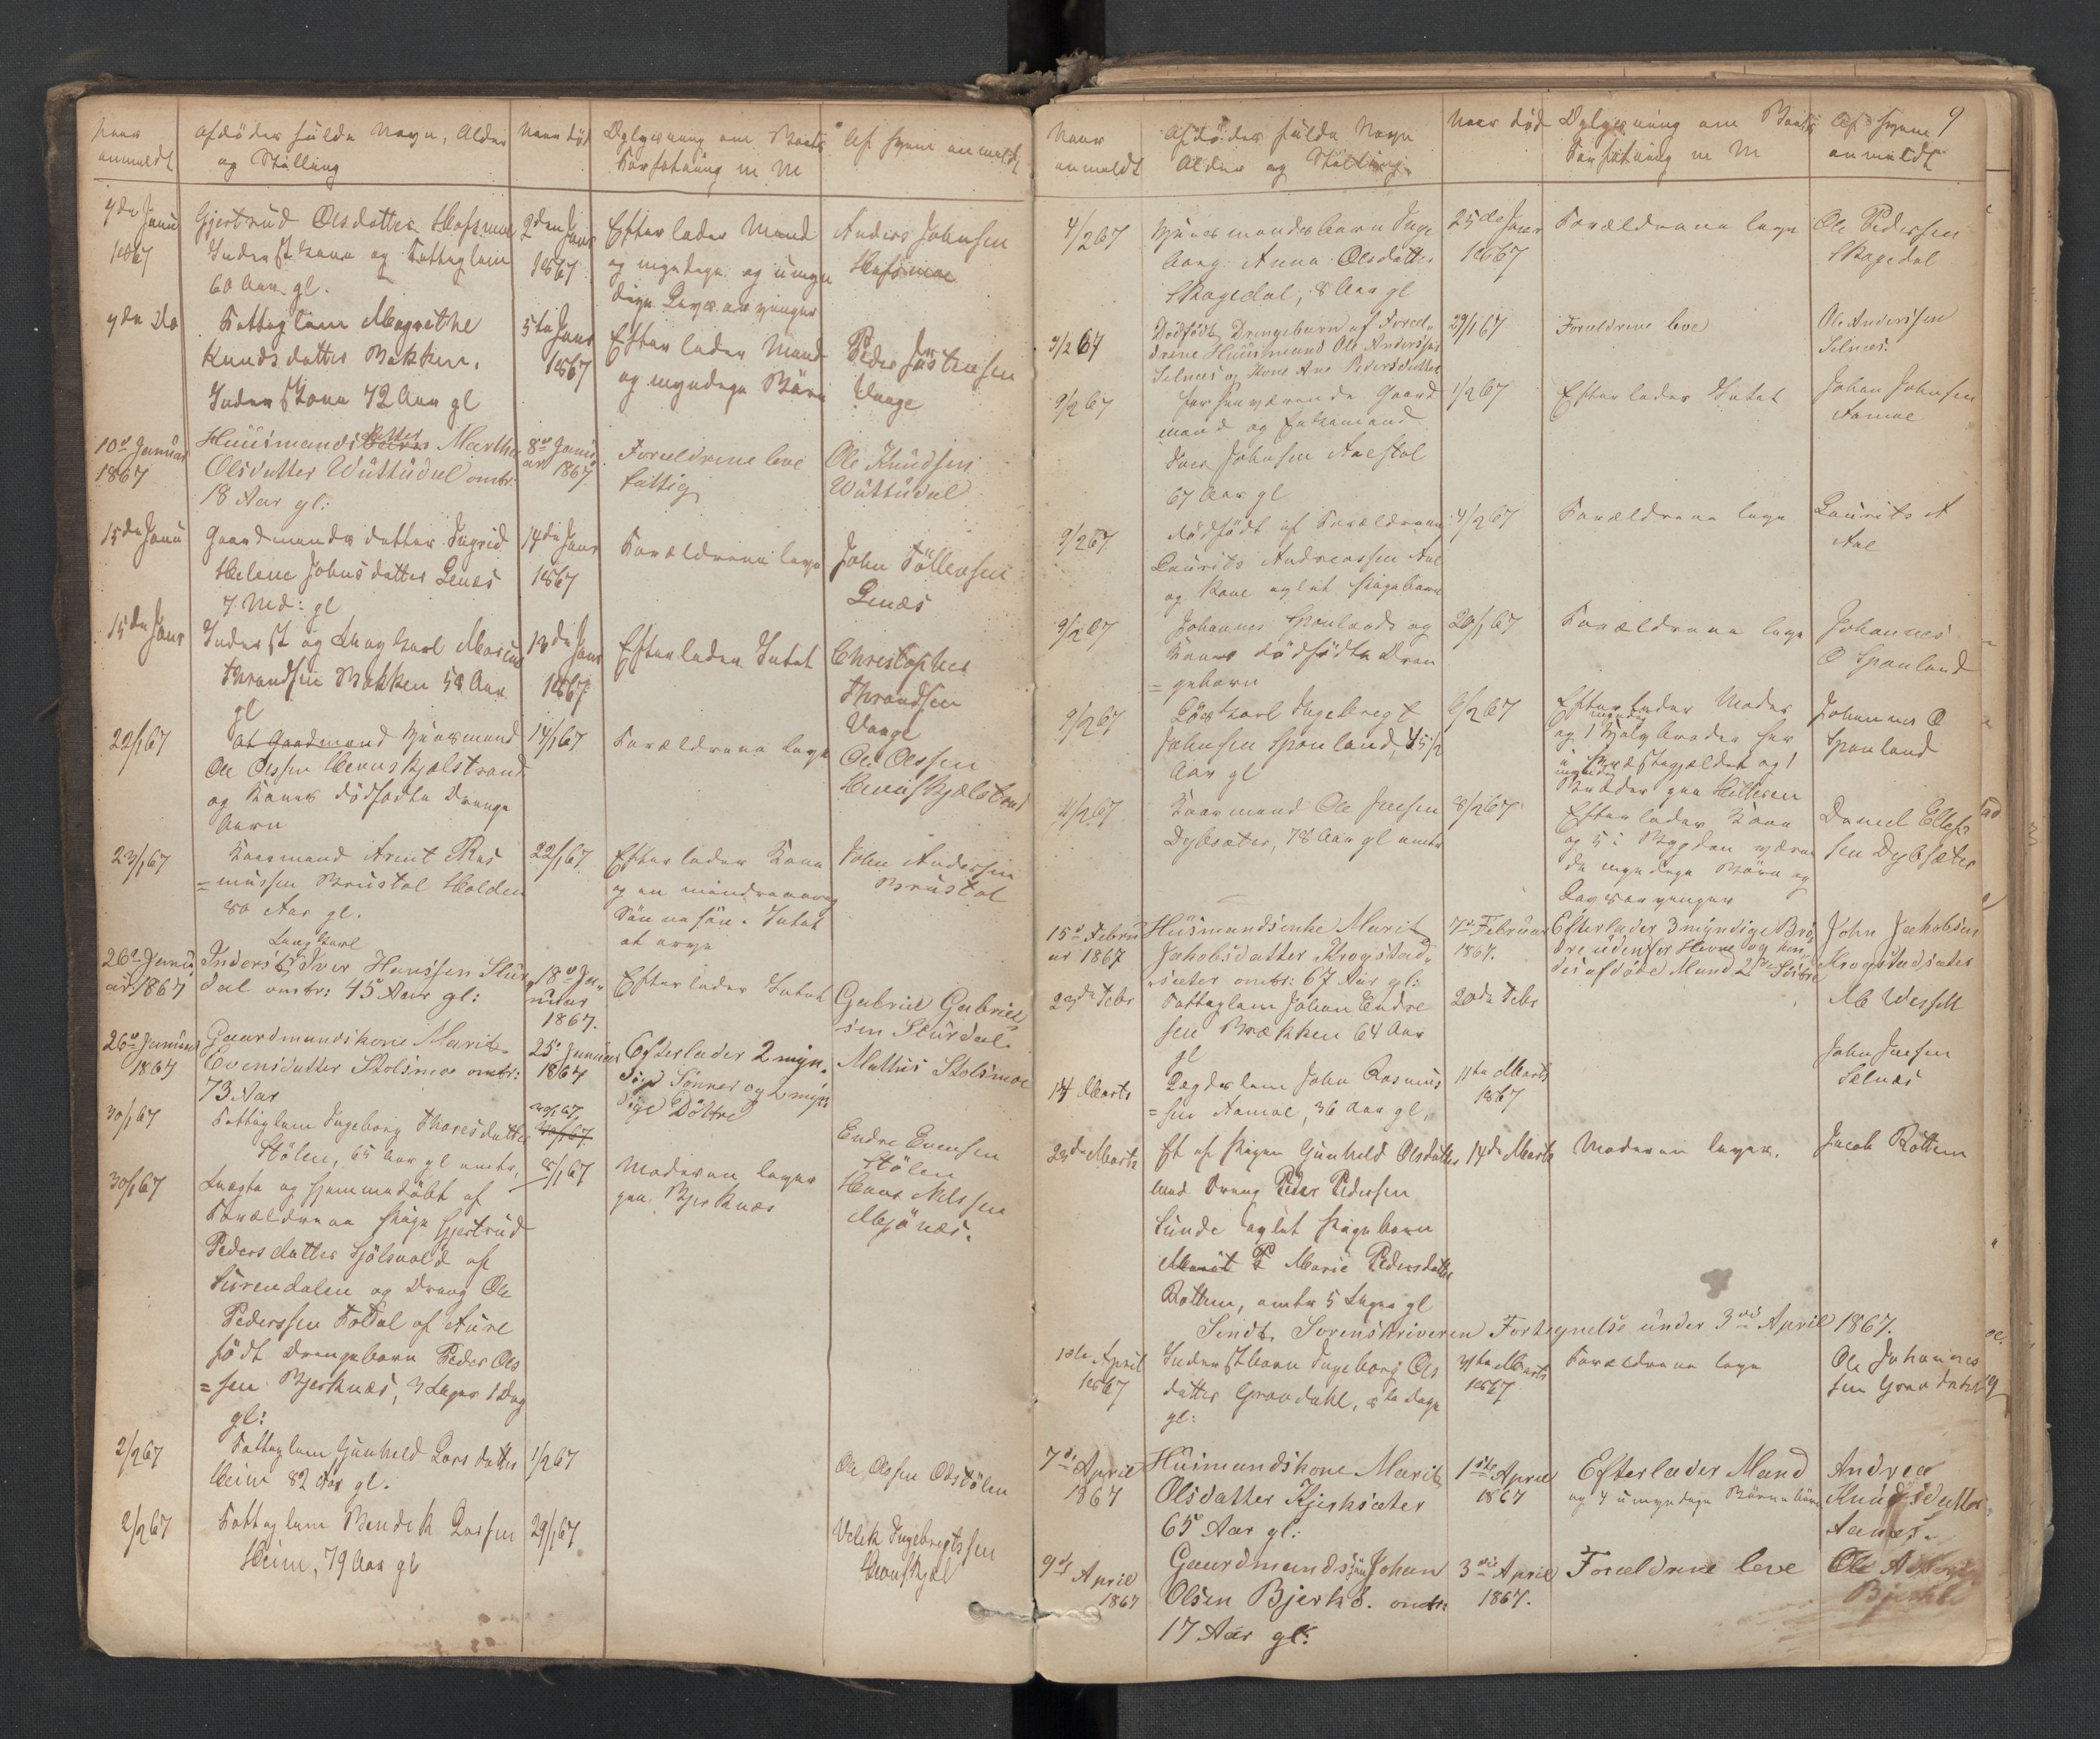 Naar
anmeldt
Afdødes fulde Navn, Alder
og Stilling
Naar død
Oplysning om Boets
Forfatning m M
Af hvem anmeldt
4de Janu
1867
Gjertrud Olsdatter Hofsmoe
Inderstkone og Fattiglem
60 Aar gl.
2den Janr
1867
Efterlader Mand
og myndige og umyn
dige Livsarvinger
Anders Johnsen
Hofsmoe
9de Do
Fattiglem Magrethe
Knudsdatter Bakken,
Inderstkone 72 Aar gl
5te Janr
1867
Efterlader Mand
og myndige Børn
Peder Justensen
Vaage
10de Januar
1867
Huusmandsdatter Marthe
Olsdatter Wuttudal omtr:
18 Aar gl:
8de Janu
ar 1867
Forældrene leve
fattig
Ole Knudsen
Wuttudal
15de Janu
Gaardmands datter Ingrid
Helene Johnsdatter Lenæs
7 Md: gl
14de Janr
1867
Forældrene leve
John Tøllevsen
Lenæs
15de Janr
Inderst og Lægkarl Marius
Thrandsen Bakken 58 Aar
gl
13de Janr
1867
Efterlader Intet
Christopher
Thrandsen
Vaage
22/1 67
at Gaardmand Huusmand
Ole Olssen Hennskjelstrand
og Kones dødfødte Drenge
barn
14/1 67
Forældrene leve
Ole Olssen
Hennskjelstrand
23/1 67
Kaarmand Arent Ras
=mussen Brustøl Holden
80 Aar gl.
22/1 67
Efterlader Kone
og en mindreaarig
Sønnesøn. Intet
at arve
John Andersen
Brustøl
26de Janu
ar 1867
Lægkarl
Inderst Iver Hanssen Stur
dal omtr: 45 Aar gl:
18de Ja
nuar
1867.
Efterlader Intet
Gabriel Gabriel
sen Sturdal
26de Januar
1867
Gaardmandskone Marit
Evensdatter Stolsmoe omtr:
73 Aar
25de Januar
1867
Efterlader 2 myn
dige Sønner og 2 myn
dige Døttre
Mathis Stolsmoe
30/1 67
Fattiglem Ingeborg Thoresdatter
Stølen, 65 Aar gl omtr,
Endre Evensen
Stølen
30/1 67
Lægte og hjemmedøbt af
Forældrene Pige Gjertrud
Pedersdatter Sjølsvold af
Surendalen og Dreng Ole
Pederssen Todal af Aure
født Drengebarn Peder Ols
=sen Bjerknæs, 3 Uger 1 Dag
gl:
8/1 67
Moderen lever
paa Bjerknæs
Hans Nilssen
Mejønæs.
2/2 67
Fattiglem Gunhild Larsdatter
Heim 82 Aar gl.
1/2 67
Ole Olssen Odstølen
2/2 67
Fattiglem Bendik Larsen
Heim, 79 Aar gl
29/1 67
Velik Ingebregtssen
9
Naar
anmeldt
Afdødes fulde Navn
Alder og Stilling
Naar død
Oplysning om Boets
Forfatning m M
Af hvem
anmeldt
4/2 67
Huusmandsbarn Inge
borg Anna Olsdatter
Skagedal, 8 Aar gl
25de Janr
1867
Forældrene leve
Ole Pedersen
Skagedal
9/2 67
Dødfødt Drengebarn af Foræl
drene Huusmand Ole Anderssen
Selnæs og Kone Ane Pedersdatter
29/1 67
Forældrene leve
Ole Anderssen
Selnæs.
9/2 67
forhenværende Gaard
mand og Enkemand
Iver Johnsen Aaestøl
67 Aar gl
1/2 67
Efterlader Intet
Johan Johnsen
Aamoe
9/2 67.
dødfødt af Forældrene
Laurits Andreassen Aae
og Kone ægte Pigebarn
4/2 67
Forældrene leve
Laurits A
Aae
9/2 67
Johannes Spanlands og
Kones dødfødte Dren
=gebarn
20/1 67
Forældrene leve
Johannes
O Spanland
9/2 67.
Løskarl Ingebregt
Johnsen Spanland, 45 1/2
Aar gl
6/2 67
Efterlader Moder
og 1 myndig Halvbroder her
i Præstegjældet og 1
myndig Broder paa Hitteren
Johannes O
Spanland
11/2 67.
Kaarmand Ole Jensen
Dybsæter, 78 Aar gl omtr
8/2 67
Efterlader Kone
og 5 i Bygden væren
de myndige Børn og
Livsarvinger
Daniel Ellef
sen Dybsæter
15de Febru
ar 1867
Husmandsenke Marit
Jakobsdatter Krogstad
sæter omtr: 67 Aar gl:
7de Februar
1867.
Efterlader 3 myndige Brø
dre udenfor Hevne og hen
des afdøde Mand 2de Søstre
John Jakobsen
Krogstadsæter
23de Febr
Fattiglem Johan Endre
sen Brækken 64 Aar
gl
20de Febr
M Wessel
14 Marts
Lægdslem John Rasmus
=sen Aamoe, 36 Aar gl,
11te Marts
1867
John Jensen
Selnæs
23de Marts
Et af Pigen Gunhild Olsdatter
med Dreng Peder Pedersen
Sunde avlet Pigebarn
Marit P Marie Pedersdatter
Rottem, omtr 5 Uger gl
14de Marts
Moderen lever.
Jacob Rottem
Sendt Sorenskriveren Fortegnelse under 3die April 1867.
1ste April
1867
Inderstbarn Ingeborg Ols
datter Gravdahl, 8te Dage
gl:
31te Marts
1867
Forældrene leve
Ole Johannes
sen Gravdahl
7de April
1867
Husmandskone Marit
Olsdatter Kjerksæter
65 Aar gl:
1ste April
1867
Efterlader Mand
og 4 umyndige Børnebørn
Andrea
Knudsdatter
Aanes.
9de April
1867
Gaardmandssøn Johan
Olsen Bjerkø. omtr:
17 Aar gl:
3die April
1867.
Forældrene leve
Ole
Bjerkø